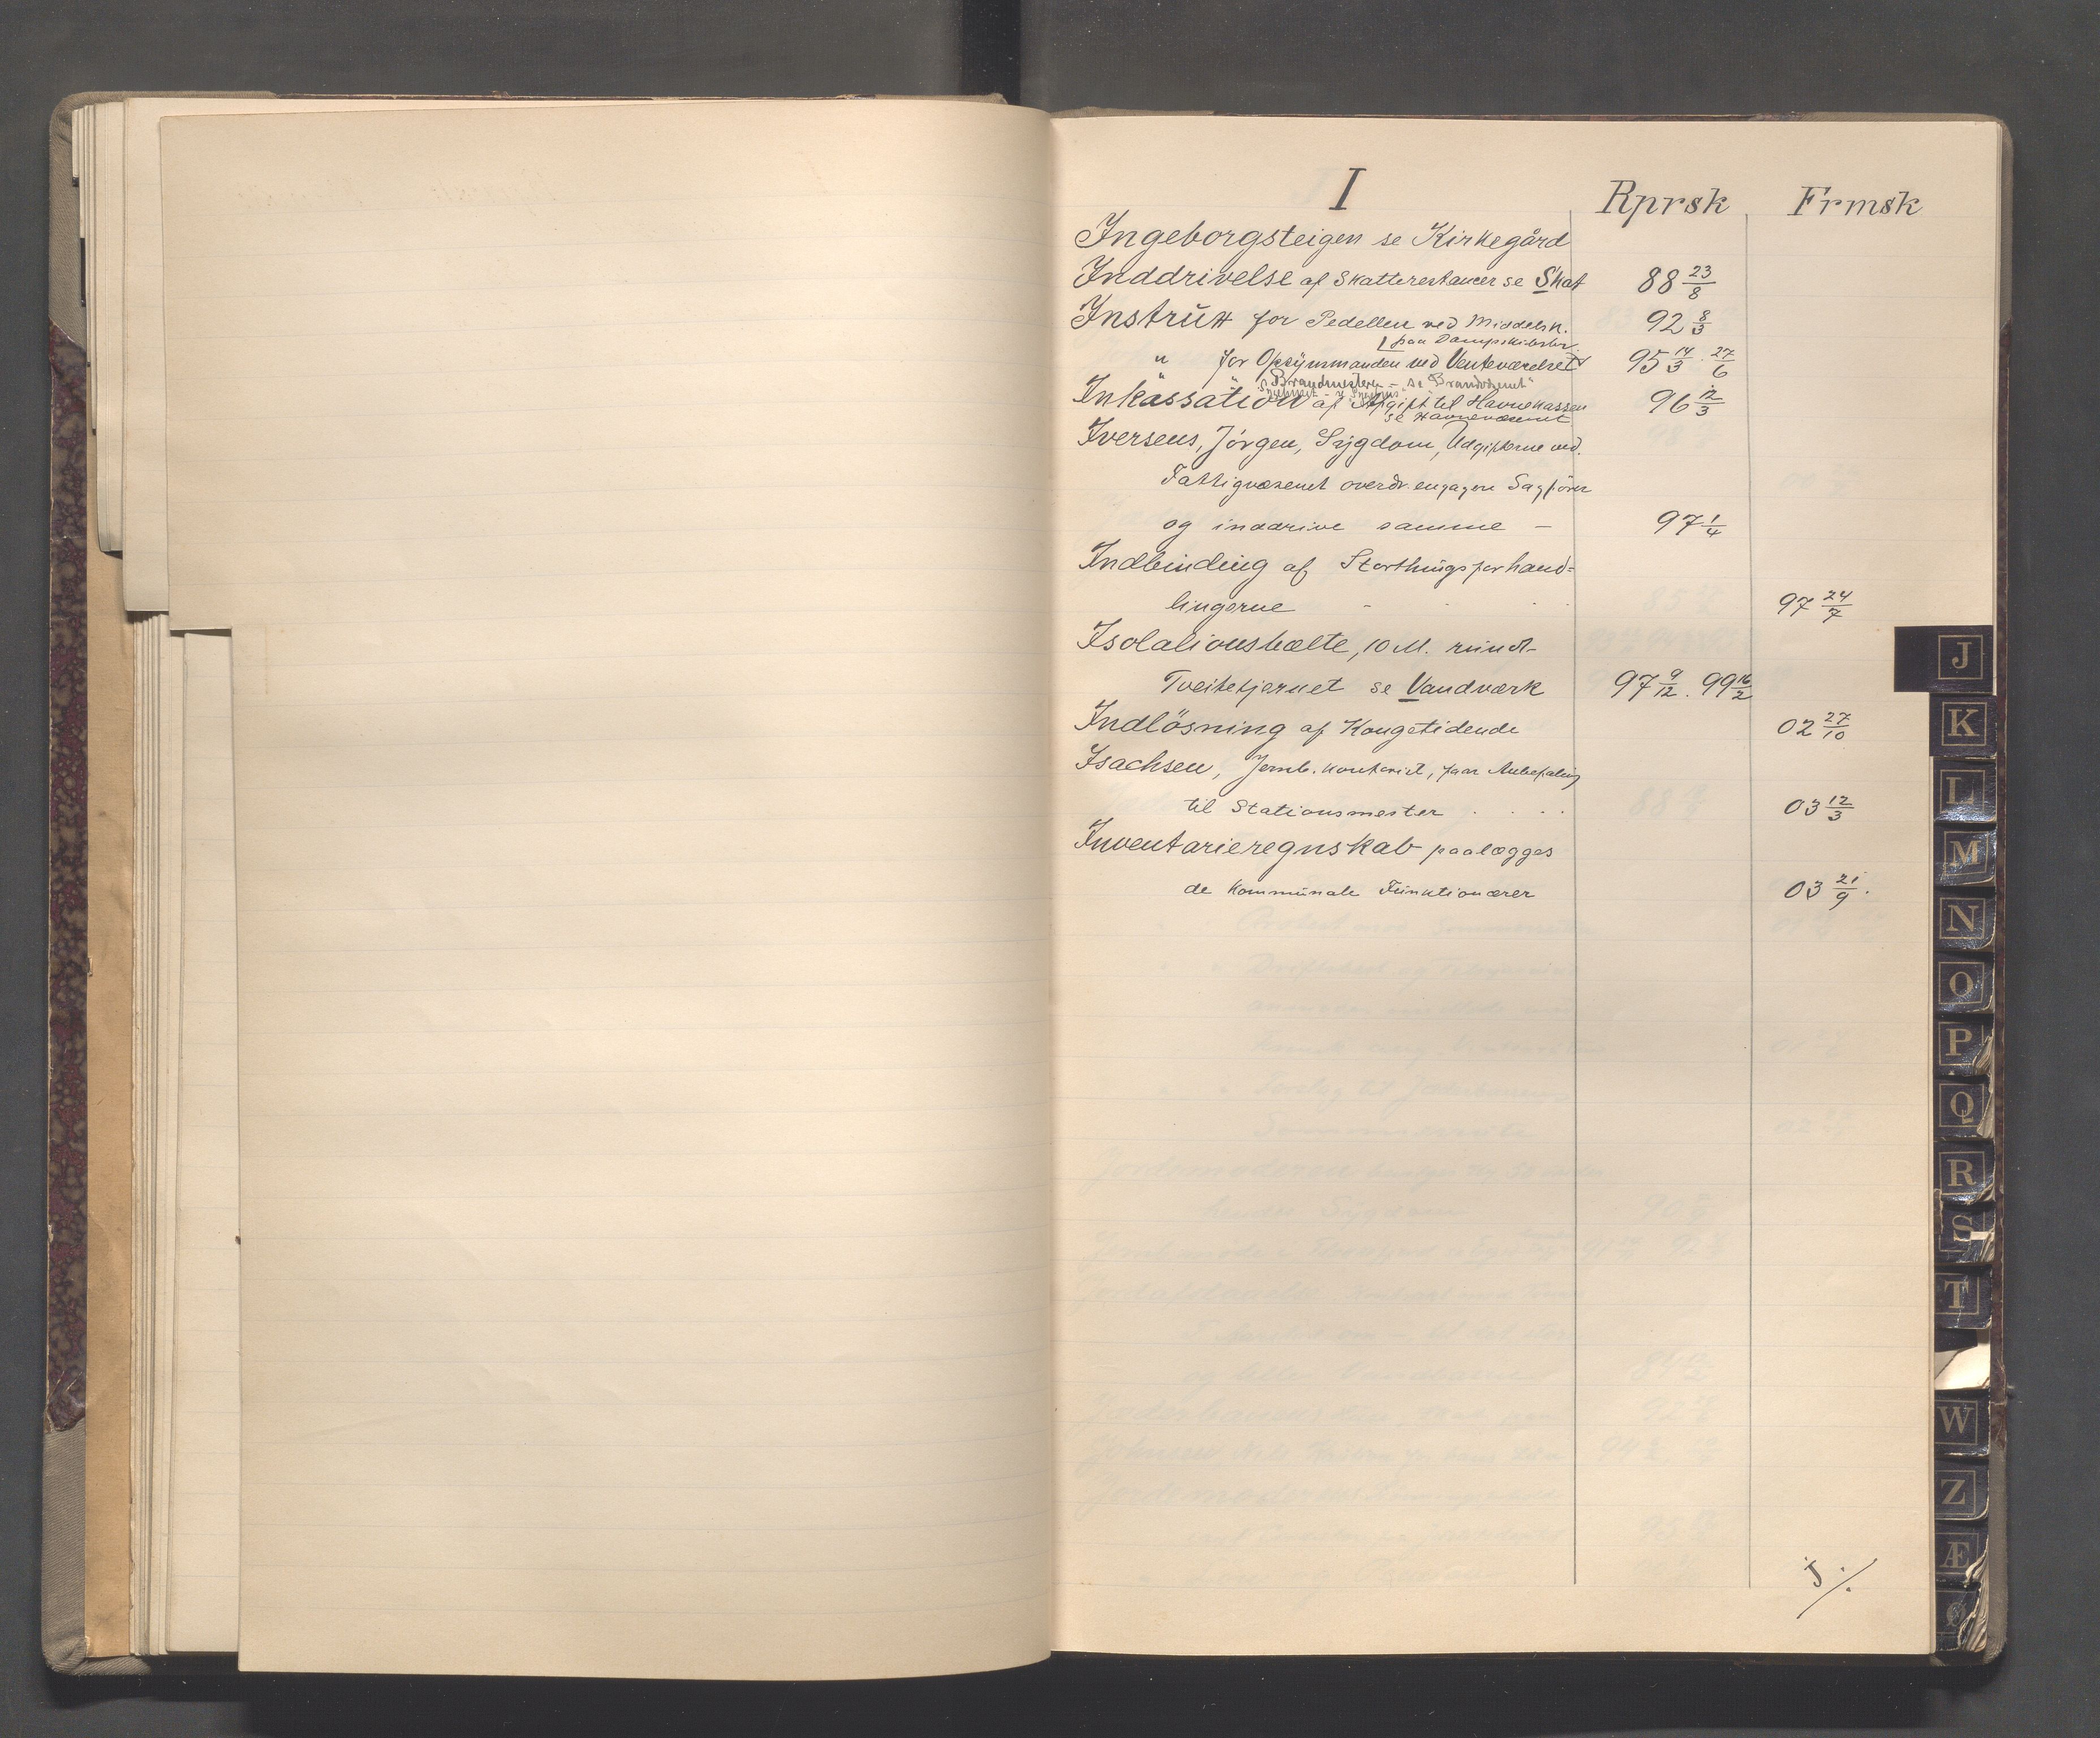 I
Rprsk Frmsk
Ingeborgsteigen se Kirkegård
Inddrivelse af Skatterestancer se Skat 88 23/8
Instrux for Pedellen ved Middelsk. 92 8/3
paa Dampskibsbr.
" for Opsynsmanden ved Venteværelset 95 14/3 . 27/6
" " Brandmester – se "Brandvæsenet"
Inkassation af Afgift til Havnekassen 96 12/3
se Havnevæsenet
Iversens, Jörgen, Sygdom, Udgifterne ved.
Fattigvæsenet overdr. engagere Sagförer
og inddrive samme – 97 1/4
Indbinding af Storthingsforhand-
lingerne 97 24/7
Isolationsbælte, 10 M. rundt
Tveitetjernet se Vandværk 97 9/12 . 99 16/2
Indlösning af Kongetidende 02 27/10
Isachsen, Jernb. kontorist, faar Anbefaling
til Stationsmester . . . . 03 12/3
Inventarieregnskab paalægges
de kommunale Funktionærer 03 21/9 .
J ./.
J
K
L
M
N
O
P
Q
R
S
T
W
Z
Æ
Ø